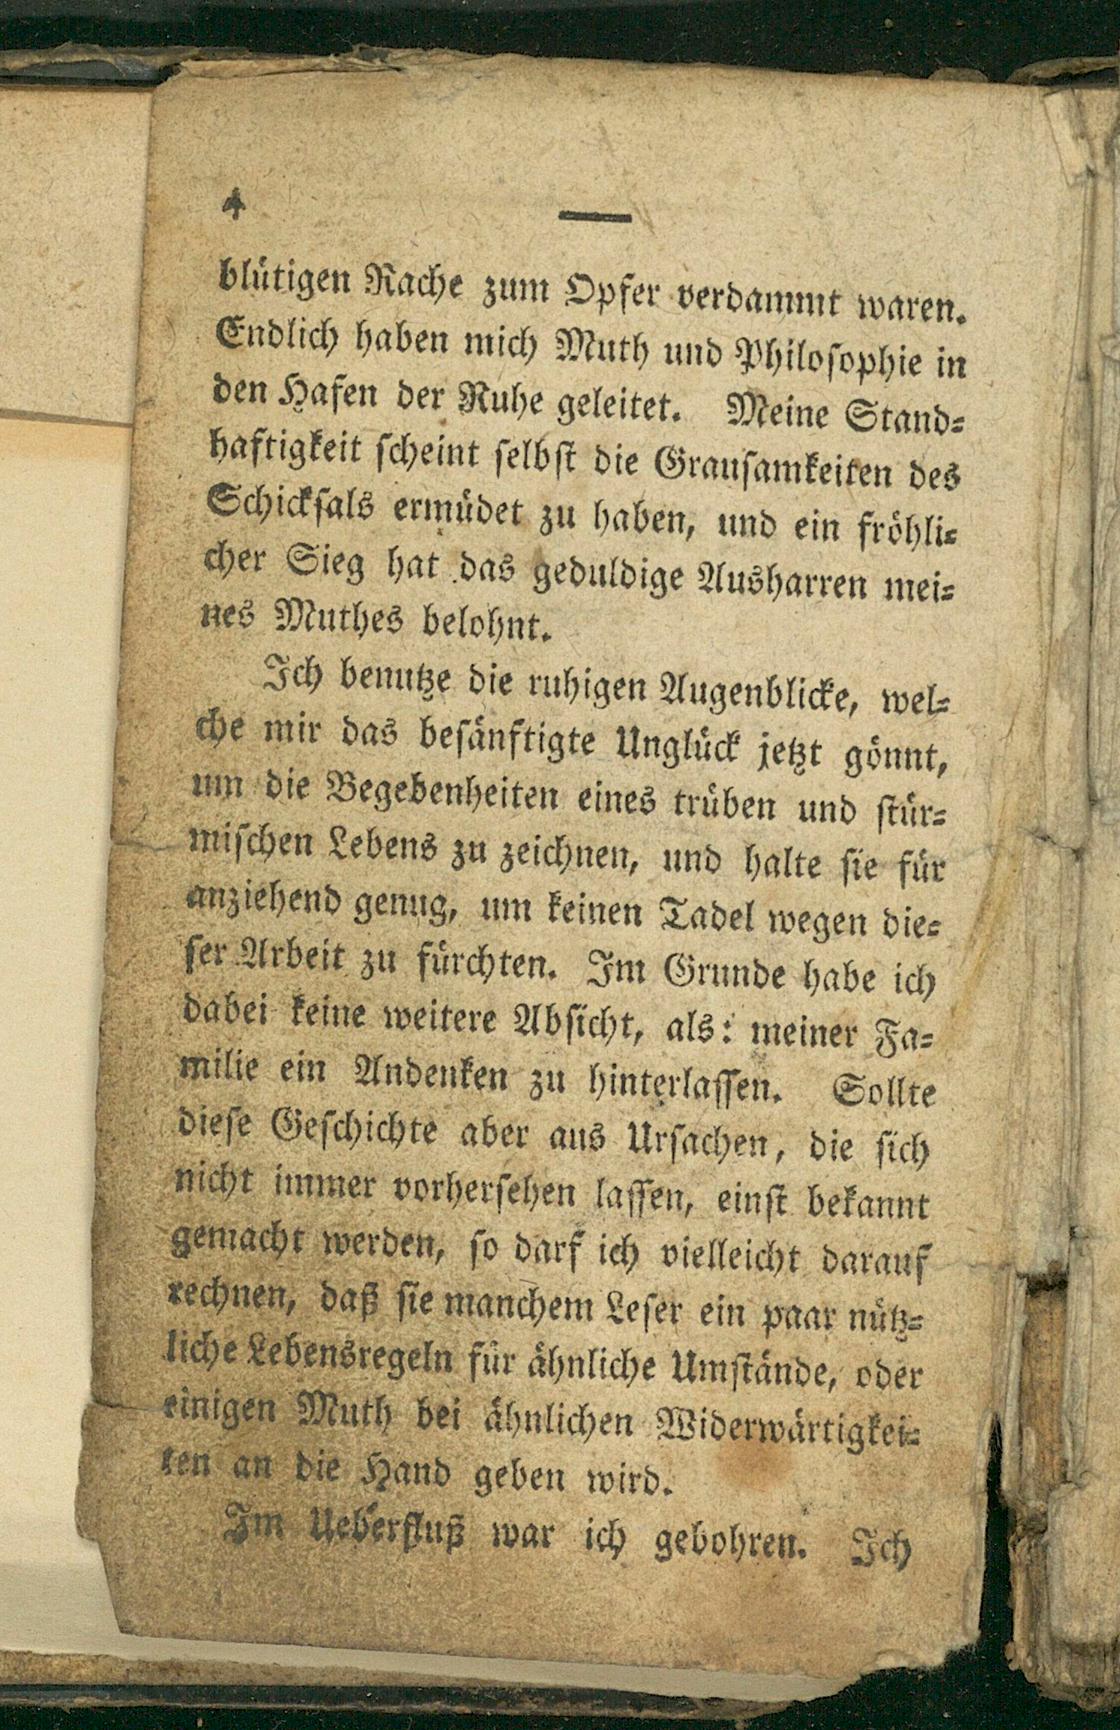 4
blütigen Rache zum Opfer verdammt waren.
Endlich haben mich Muth und Philosophie in
den Hafen der Ruhe geleitet. Meine Stand-
haftigkeit scheint selbst die Grausamkeiten des
Schicksals ermüdet zu haben, und ein fröhli-
cher Sieg hat das geduldige Ausharren mei-
nes Muthes belohnt.
Ich benutze die ruhigen Augenblicke, wel-
che mir das besänftigte Unglück jetzt gönnt,
um die Begebenheiten eines trüben und stür-
mischen Lebens zu zeichnen, und halte sie für
anziehend genug, um keinen Tadel wegen die-
ser Arbeit zu fürchten. Im Grunde habe ich
dabei keine weitere Absicht, als: meiner Fa-
milie ein Andenken zu hinterlassen. Sollte
diese Geschichte aber aus Ursachen, die sich
nicht immer vorhersehen lassen, einst bekannt
gemacht werden, so darf ich vielleicht darauf
rechnen, daß sie manchem Leser ein paar nütz-
liche Lebensregeln für ähnliche Umstände, oder
einigen Muth bei ähnlichen Widerwärtigkei-
ten an die Hand geben wird.
Im Ueberfluß war ich gebohren. Ich